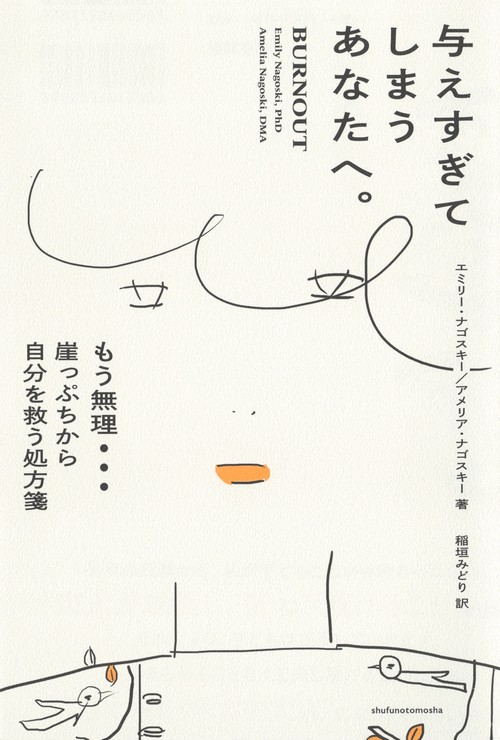 与えすぎて
しまう
あなたへ。
BURNOUT
Emily Nagoski, PhD
Amelia Nagoski, DMA
エミリー・ナゴスキー／アメリア・ナゴスキー 著
稲垣みどり 訳
もう無理・・・
崖っぷちから
自分を救う処方箋
shufunotomosha